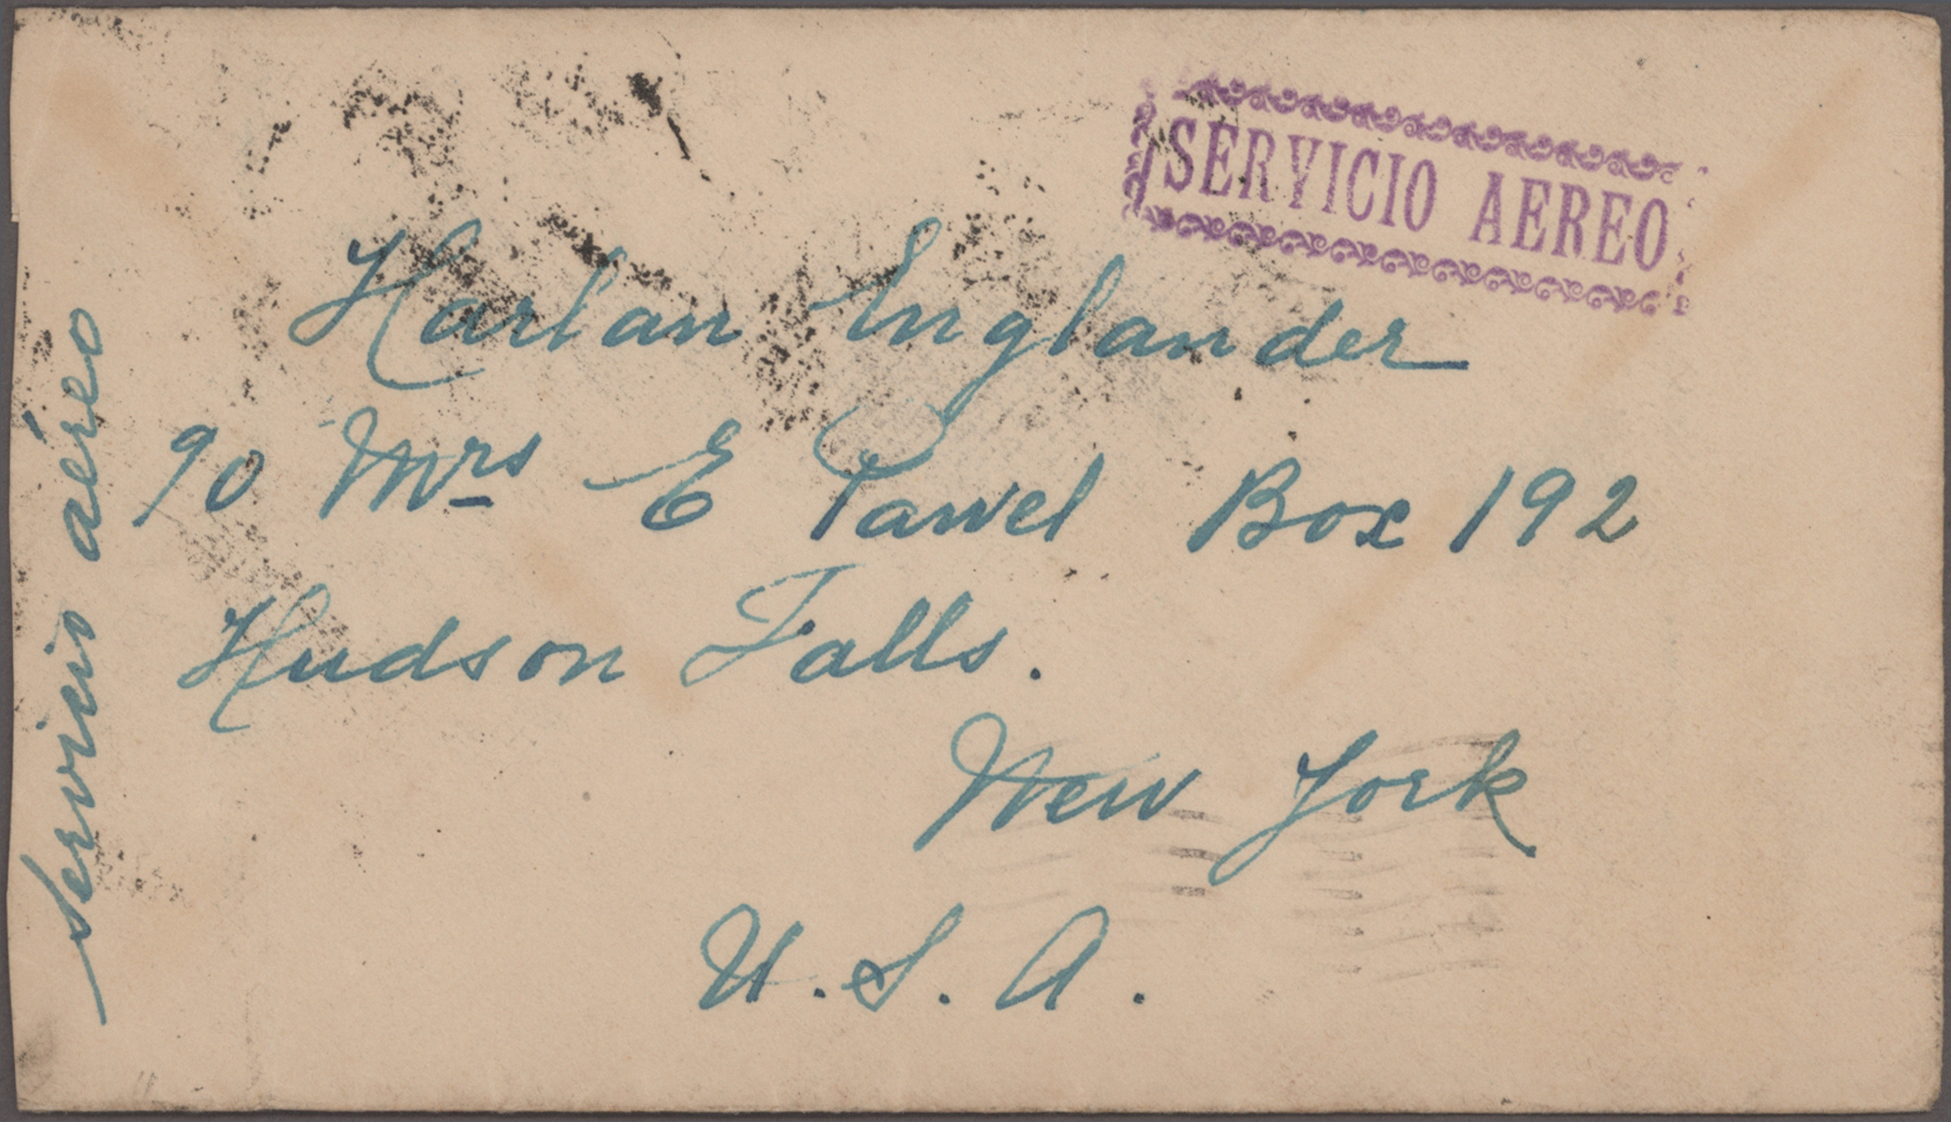 SERVICIO AEREO
Harlan Englander
℅ Mrs E Tawel Box 192
Hudson Falls.
New York
U.S.A.
Servicio aéreo